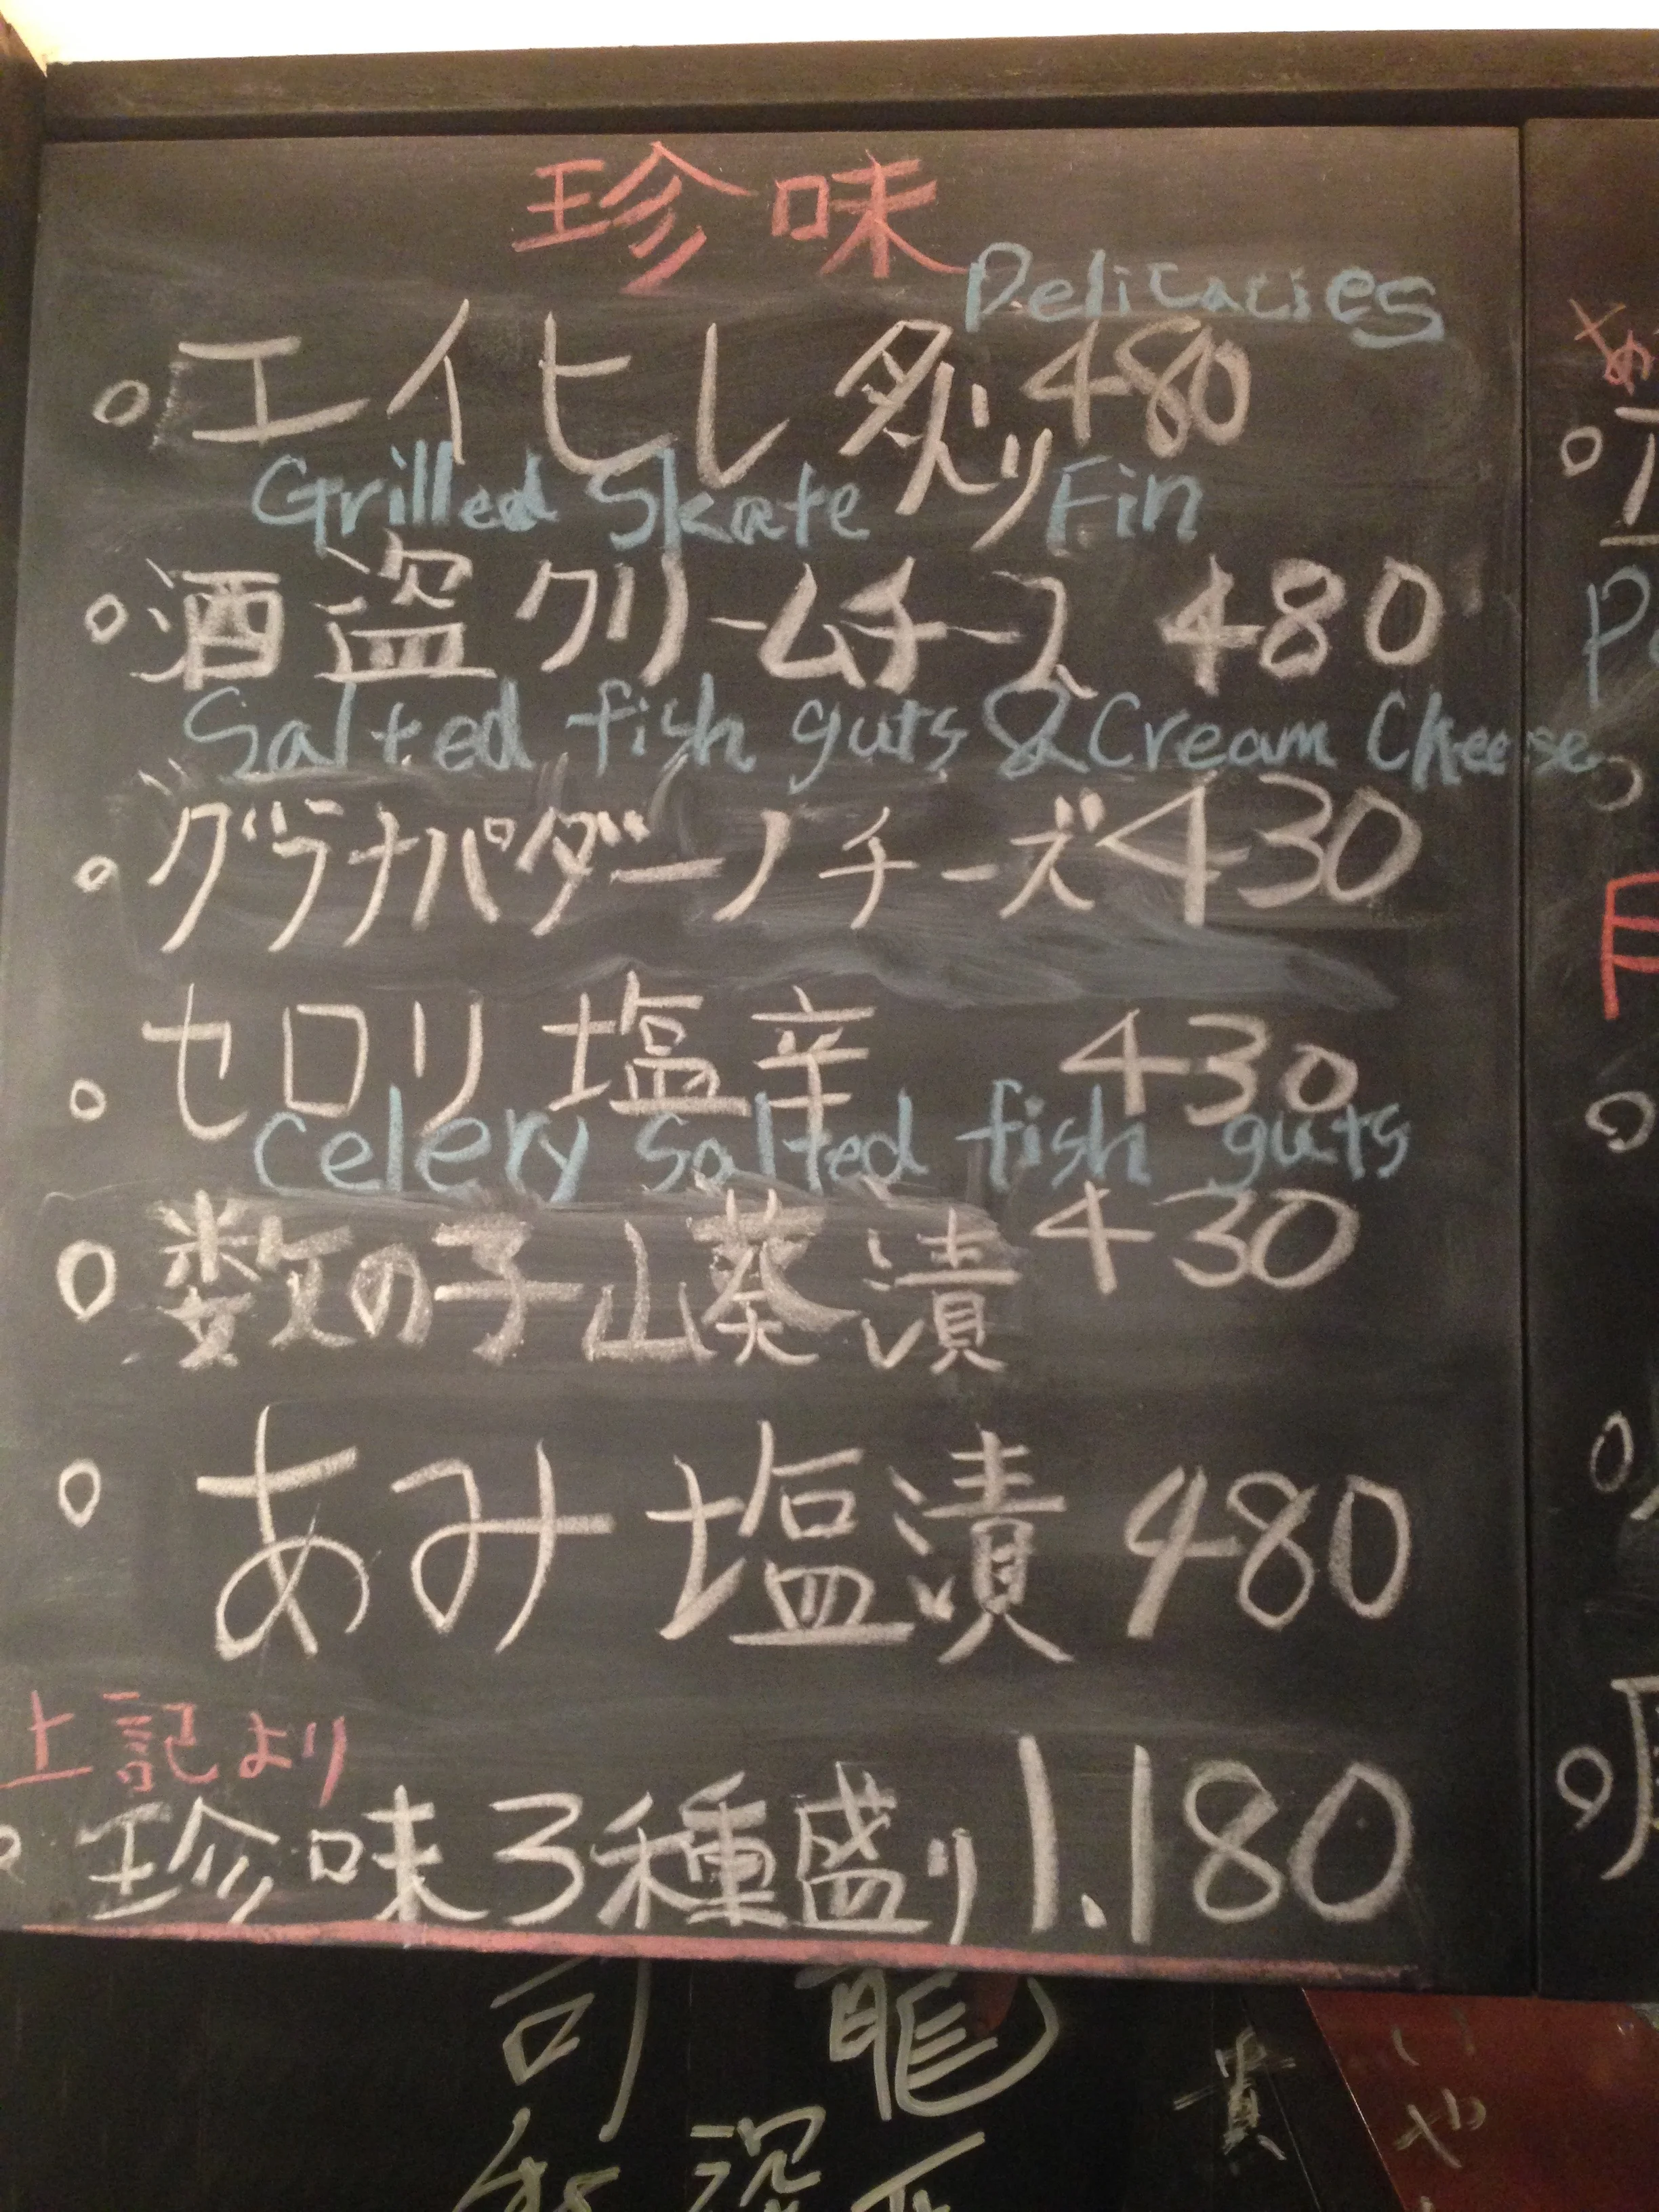 珍味
Delicacies
○エイヒレ炙り 480
Grilled Skate Fin
○酒盗クリームチーズ 480
Salted fish guts & Cream Cheese
○グラナパダーノチーズ 430
○セロリ塩辛 430
Celery Salted fish guts
○数の子山葵漬 430
○あみ塩漬 480
上記より
○珍味3種盛り 1.180